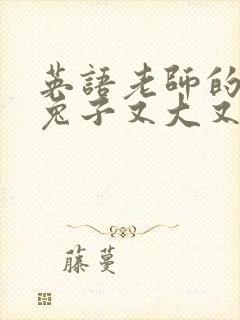 英語老師的
兔子又大又
藤蔓